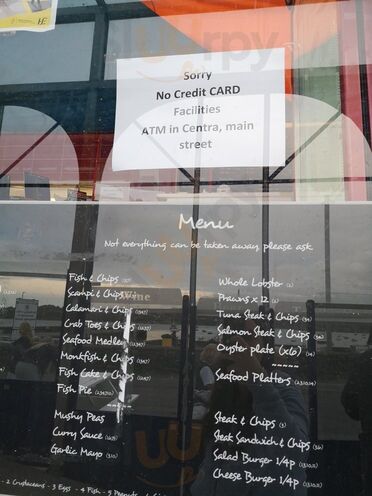 Sorry
No Credit CARD
Facilities
ATM in Centra, main
street
Menu
Not everything can be taken away please ask
Fish & Chips
Scampi & Chips
Calamari & Chips
Crab Toes & Chips
Seafood Medley
Monkfish & Chips
Fish Cake & Chips
Fish Pie
Mushy Peas
Curry Sauce
Garlic Mayo
Whole Lobster
Prawns x 12
Tuna Steak & Chips
Salmon Steak & Chips
Oyster plate (x6)
-----
Seafood Platters
Steak & Chips
Steak Sandwich & Chips
Salad Burger 1/4p
Cheese Burger 1/4p
- 2 Crustaceans - 3 Eggs - 4 Fish - 5 Peanuts